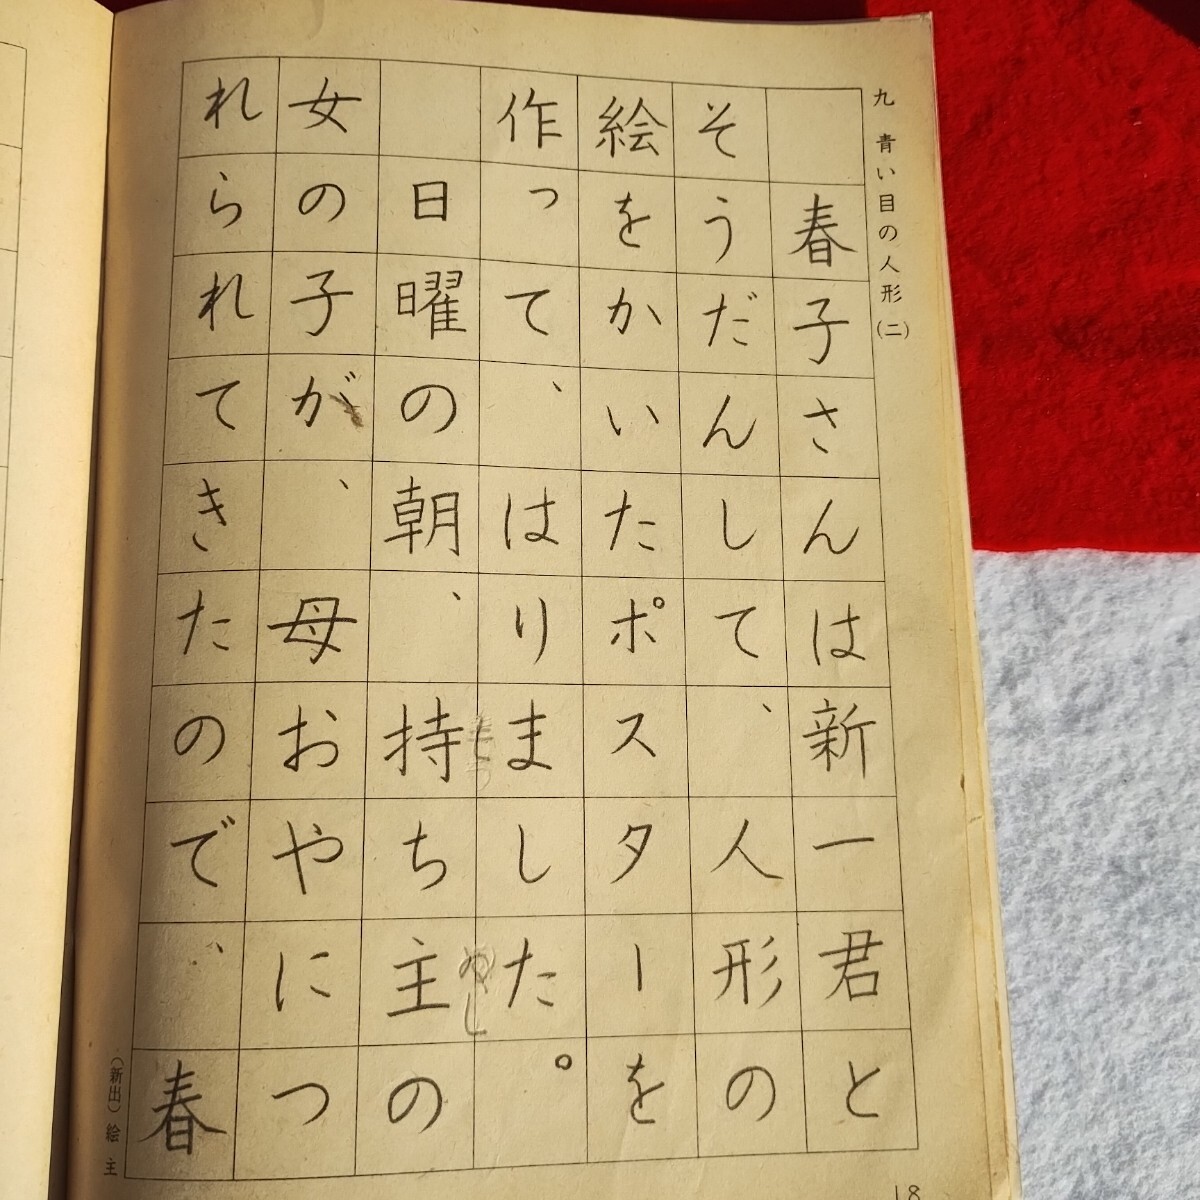 九 青い目の人形(二)
春子さんは新一君と
そうだんして、人形の
絵をかいたポスターを
作って、はりました。
日曜の朝、持ち主の
女の子が、母おやにつ
れられてきたので、春
(新出) 絵 主
18